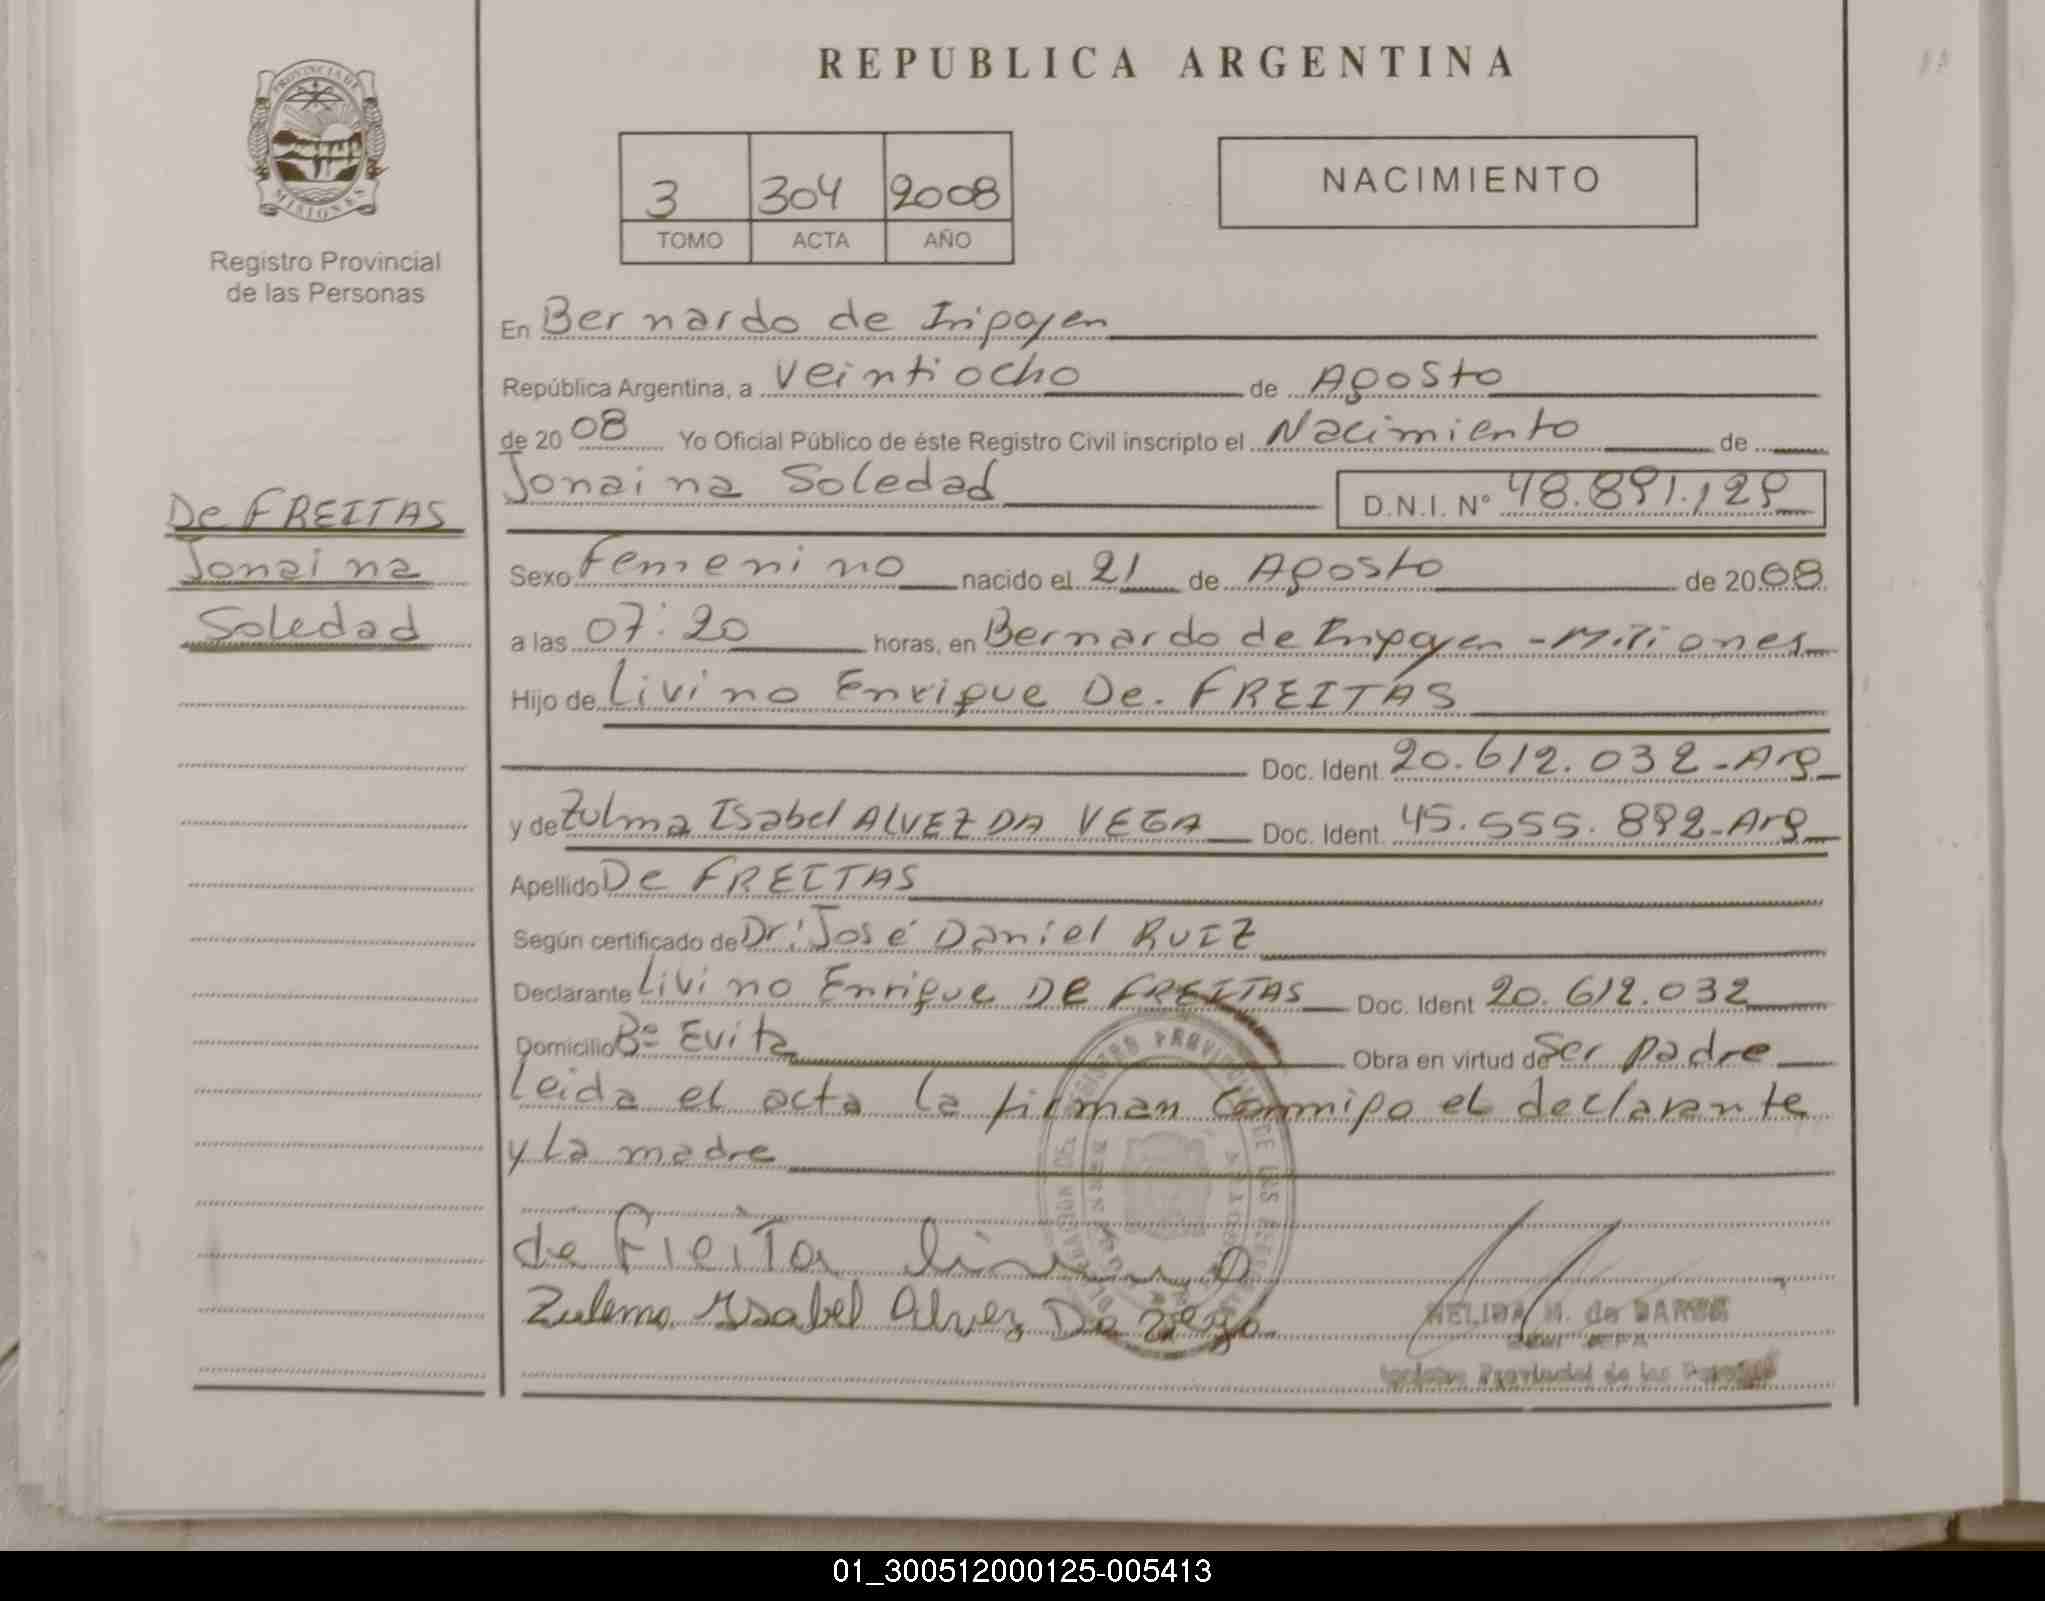 REPUBLICA ARGENTINA
PROVINCIA DE
MISIONES
Registro Provincial
de las Personas
3 304 2008
TOMO ACTA AÑO
NACIMIENTO
En Bernardo de Irigoyen
República Argentina, a veintiocho de Agosto
de 2008 Yo Oficial Público de éste Registro Civil inscripto el Nacimiento de
Jonaina Soledad D.N.I. Nº 48.891.129
De FREITAS
Jonaina
Soledad
Sexo Femenino nacido el 21 de Agosto de 2008
a las 07:20 horas, en Bernardo de Irigoyen - Misiones
Hijo de Livino Enrique De. FREITAS
Doc. Ident. 20.612.032-Arg
y de Zulma Isabel ALVEZ DA VEGA Doc. Ident. 45.555.892-Arg
Apellido De FREITAS
Según certificado de Dr: José Daniel RUIZ
Declarante Livino Enrique De FREITAS Doc. Ident 20.612.032
Domicilio Bº Evita Obra en virtud de Ser padre
Leida el acta la firman conmigo el declarante
y la madre
de Freita Livino
Zulema Ysabel Alvez Da Vega
NELIDA M. de
Registro Provincial de las Personas
01_300512000125-005413